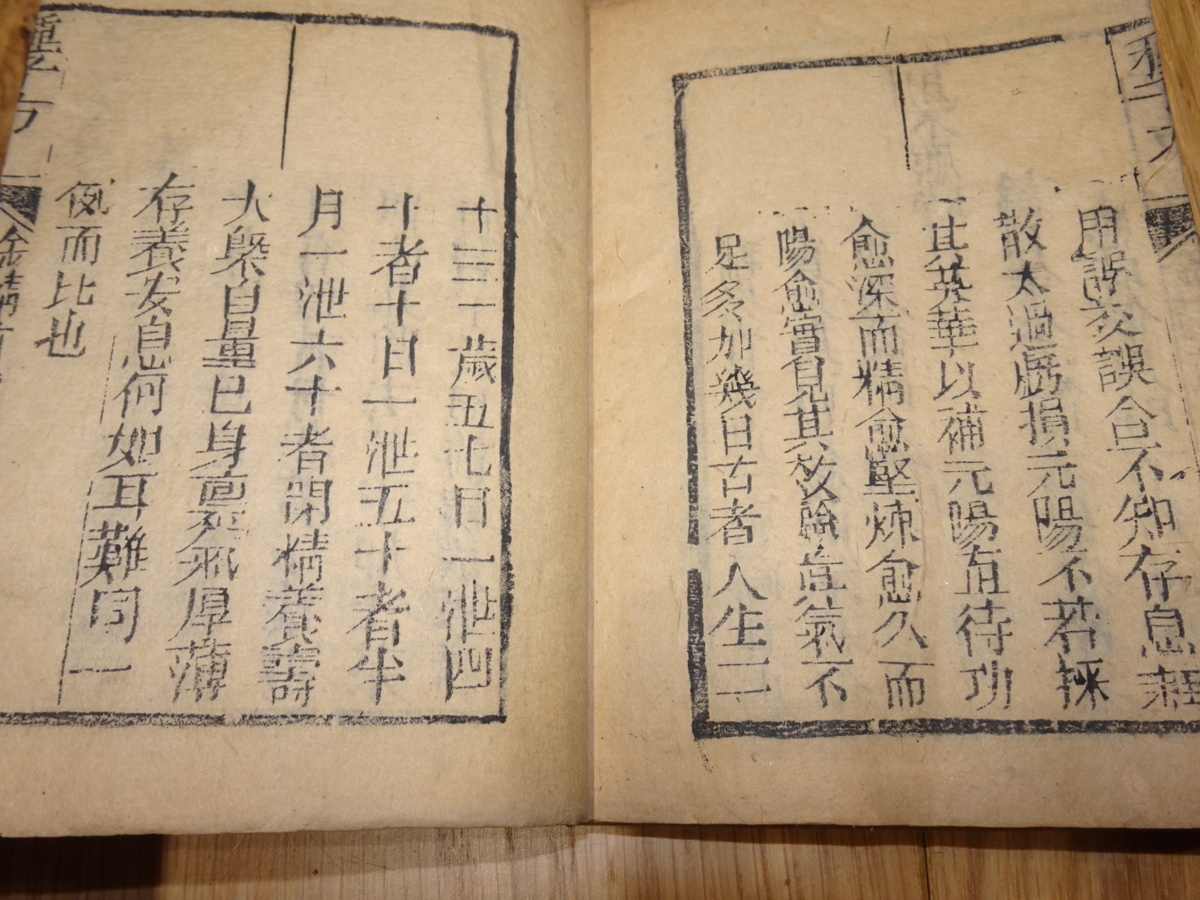 種子方
用誤交誤合不知存息耗
散太過虧損元陽不若採
其英華以補元陽直待功
愈深而精愈堅煉愈久而
陽愈實見其效驗氣不
足多加幾日古者人生二
十三十歲五七日一泄四
十者十日一泄五十者半
月一泄六十者閉精養壽
大槩自量已身禀受氣厚薄
存養安息何如耳難同一
例而比也
種子方